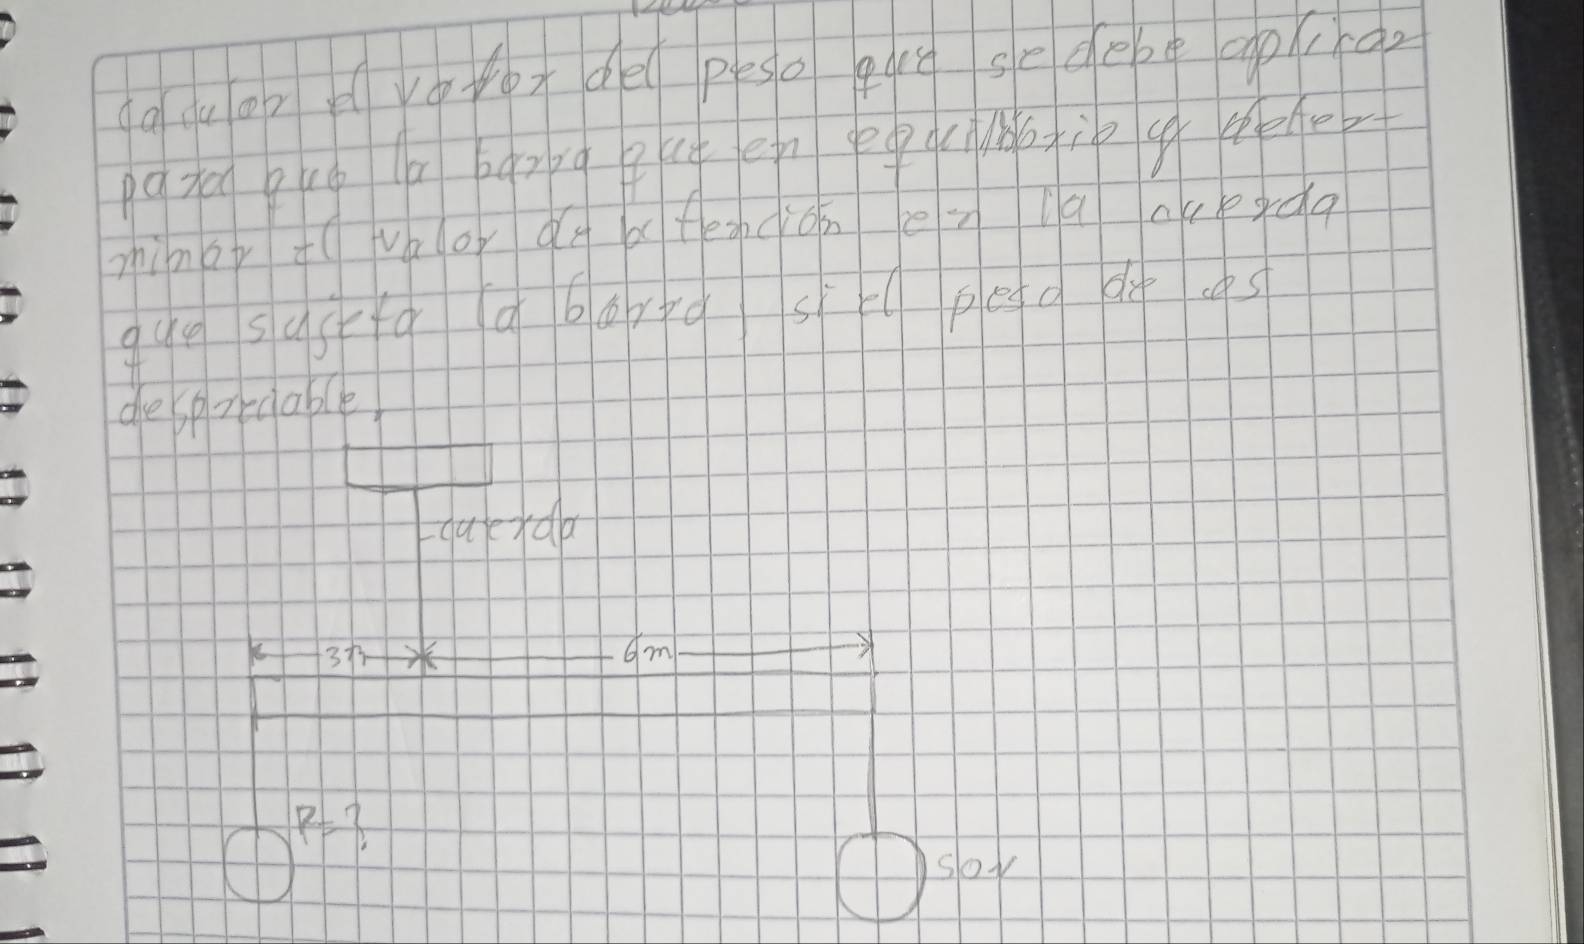 calcular el valor del peso que se debe aplicar
para que la barra que en equilibrio y deter-
minar el valor de la tención en la cuerda
que sujeta la barra, si el peso de es
despreciable.
cuerda
3m 6m
P=? 50N